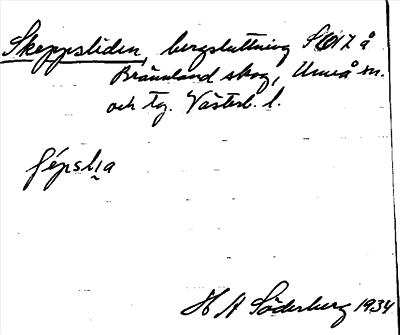 Skeppsliden, bergsluttning S om Z å
Brännland skog, Umeå sn.
och tg. Västerb. l.
H A Söderberg 1934